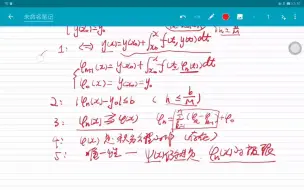 未命名笔记
y(x₀)=y₀
h≤b/M
1: ⟺ y=y(x₀)+∫_{x₀}^{x} f(t,y(t))dt
φₙ₊₁(x)=y(x₀)+∫_{x₀}^{x} f(t,φₙ(t))dt
φ₀(x)=y(x₀)=y₀
2: |φₙ(x)-y₀|≤b (h≤b/M)
3: φₙ(x)⇉φ(x) φₙ=Σ(φₖ-φₖ₋₁)+φ₀
4: φ(x)是积分方程的解
5: 唯一性 — ψ(x) φₙ(x)的极限